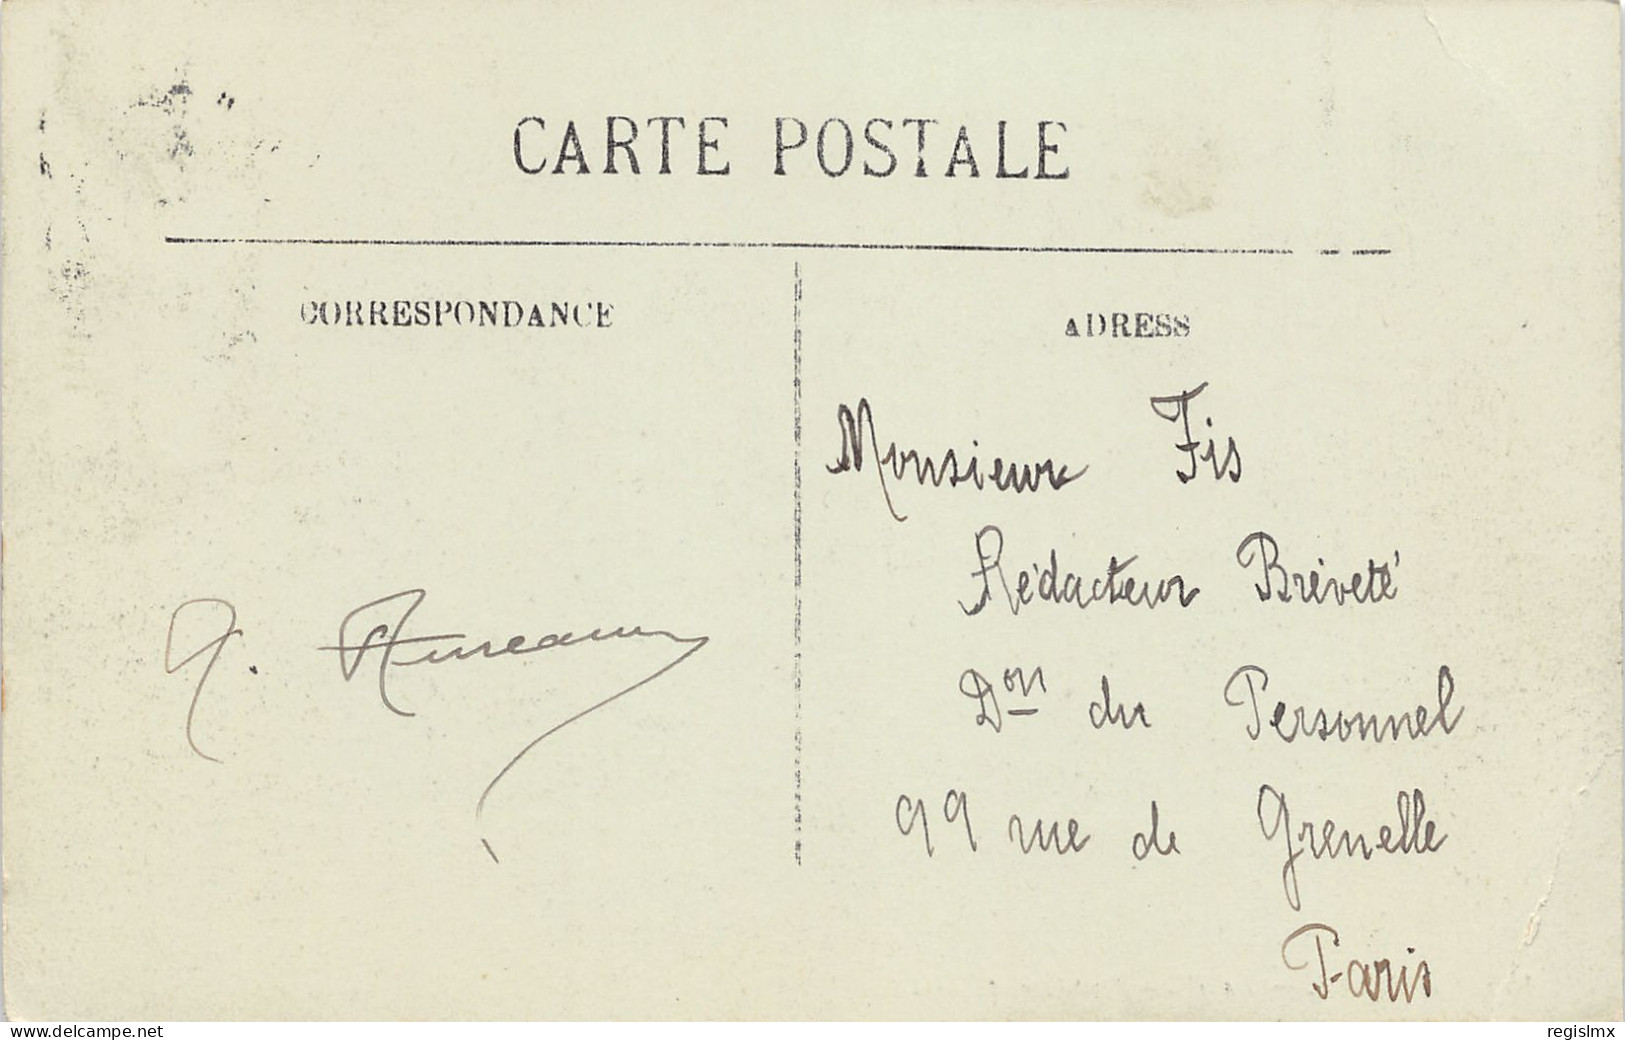 CARTE POSTALE
CORRESPONDANCE
ADRESS
Monsieur Fis
Rédacteur Bréveté
Don du Personnel
99 rue de Grenelle
Paris
www.delcampe.net
regislmx